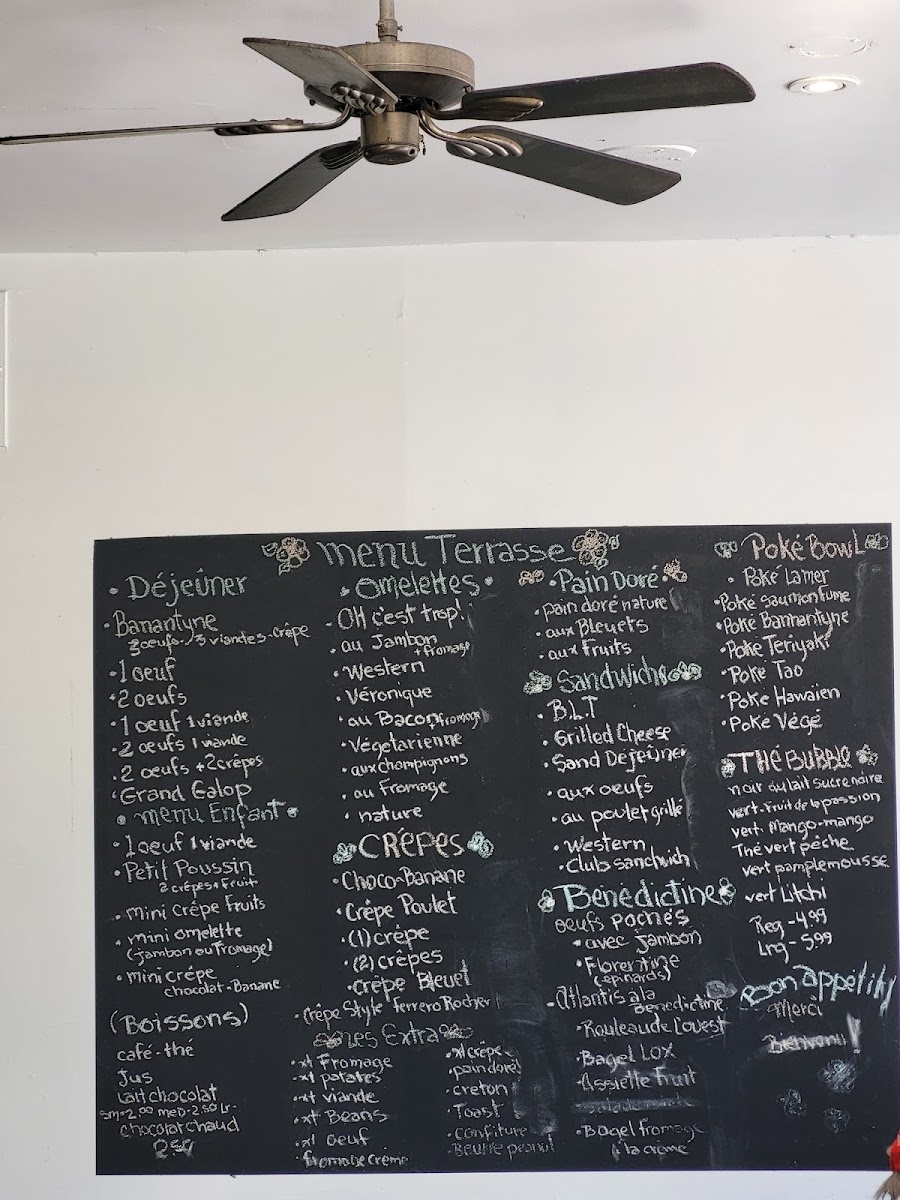 menu Terrasse
• Déjeûner
• Banantyne
3 oeufs - 3 viandes - crêpe
• 1 oeuf
• 2 oeufs
• 1 oeuf 1 viande
• 2 oeufs 1 viande
• 2 oeufs + 2 crêpes
• Grand Galop
• menu Enfant •
• 1 oeuf 1 viande
• Petit Poussin
2 crêpes + Fruit
• mini Crêpe Fruits
• mini omelette
(jambon ou Fromage)
• mini crêpe
chocolat - Banane
(Boissons)
café - thé
Jus
Lait chocolat
sm - 2.00 med - 2.50 Lr -
chocolat chaud
2.50
• Omelettes •
• OH c'est trop!
• au Jambon
+ fromage
• Western
• Véronique
• au Bacon fromage
• Végétarienne
• aux champignons
• au Fromage
• nature
CRÊPES
• Choco-Banane
• Crêpe Poulet
• (1) crêpe
• (2) crêpes
• Crêpe Bleuet
• Crêpe Style Ferrero Rocher
les Extra
• xt Fromage
• xt patates
• xt viande
• xt Beans
• xt oeuf
• fromage crème
• xt crêpe
• pain doré
• creton
• Toast
• confiture
• Beurre peanut
• Pain Doré •
• pain doré nature
• aux Bleuets
• aux Fruits
Sandwichs
• B.L.T
• Grilled Cheese
• Sand Déjeûner
• aux oeufs
• au poulet grillé
• Western
• Club sandwich
Bénédictine
oeufs pochés
• avec jambon
• Florentine
(épinards)
• Atlantis à la
Bénédictine
• Rouleau de l'ouest
• Bagel Lox
• Assiette Fruit
• Bagel fromage
à la crème
Poké Bowl
• Poké La mer
• Poké Saumon fumé
• Poké Bannantyne
• Poké Teriyaki
• Poké Tao
• Poké Hawaïen
• Poké Végé
THÉ BUBBLE
noir au lait sucre noire
vert - Fruit de la passion
vert. Mango-mango
Thé vert pêche
vert pamplemousse
vert Litchi
Reg - 4.99
Lrg - 5.99
Bon appétit!
Merci
Bienvenu!